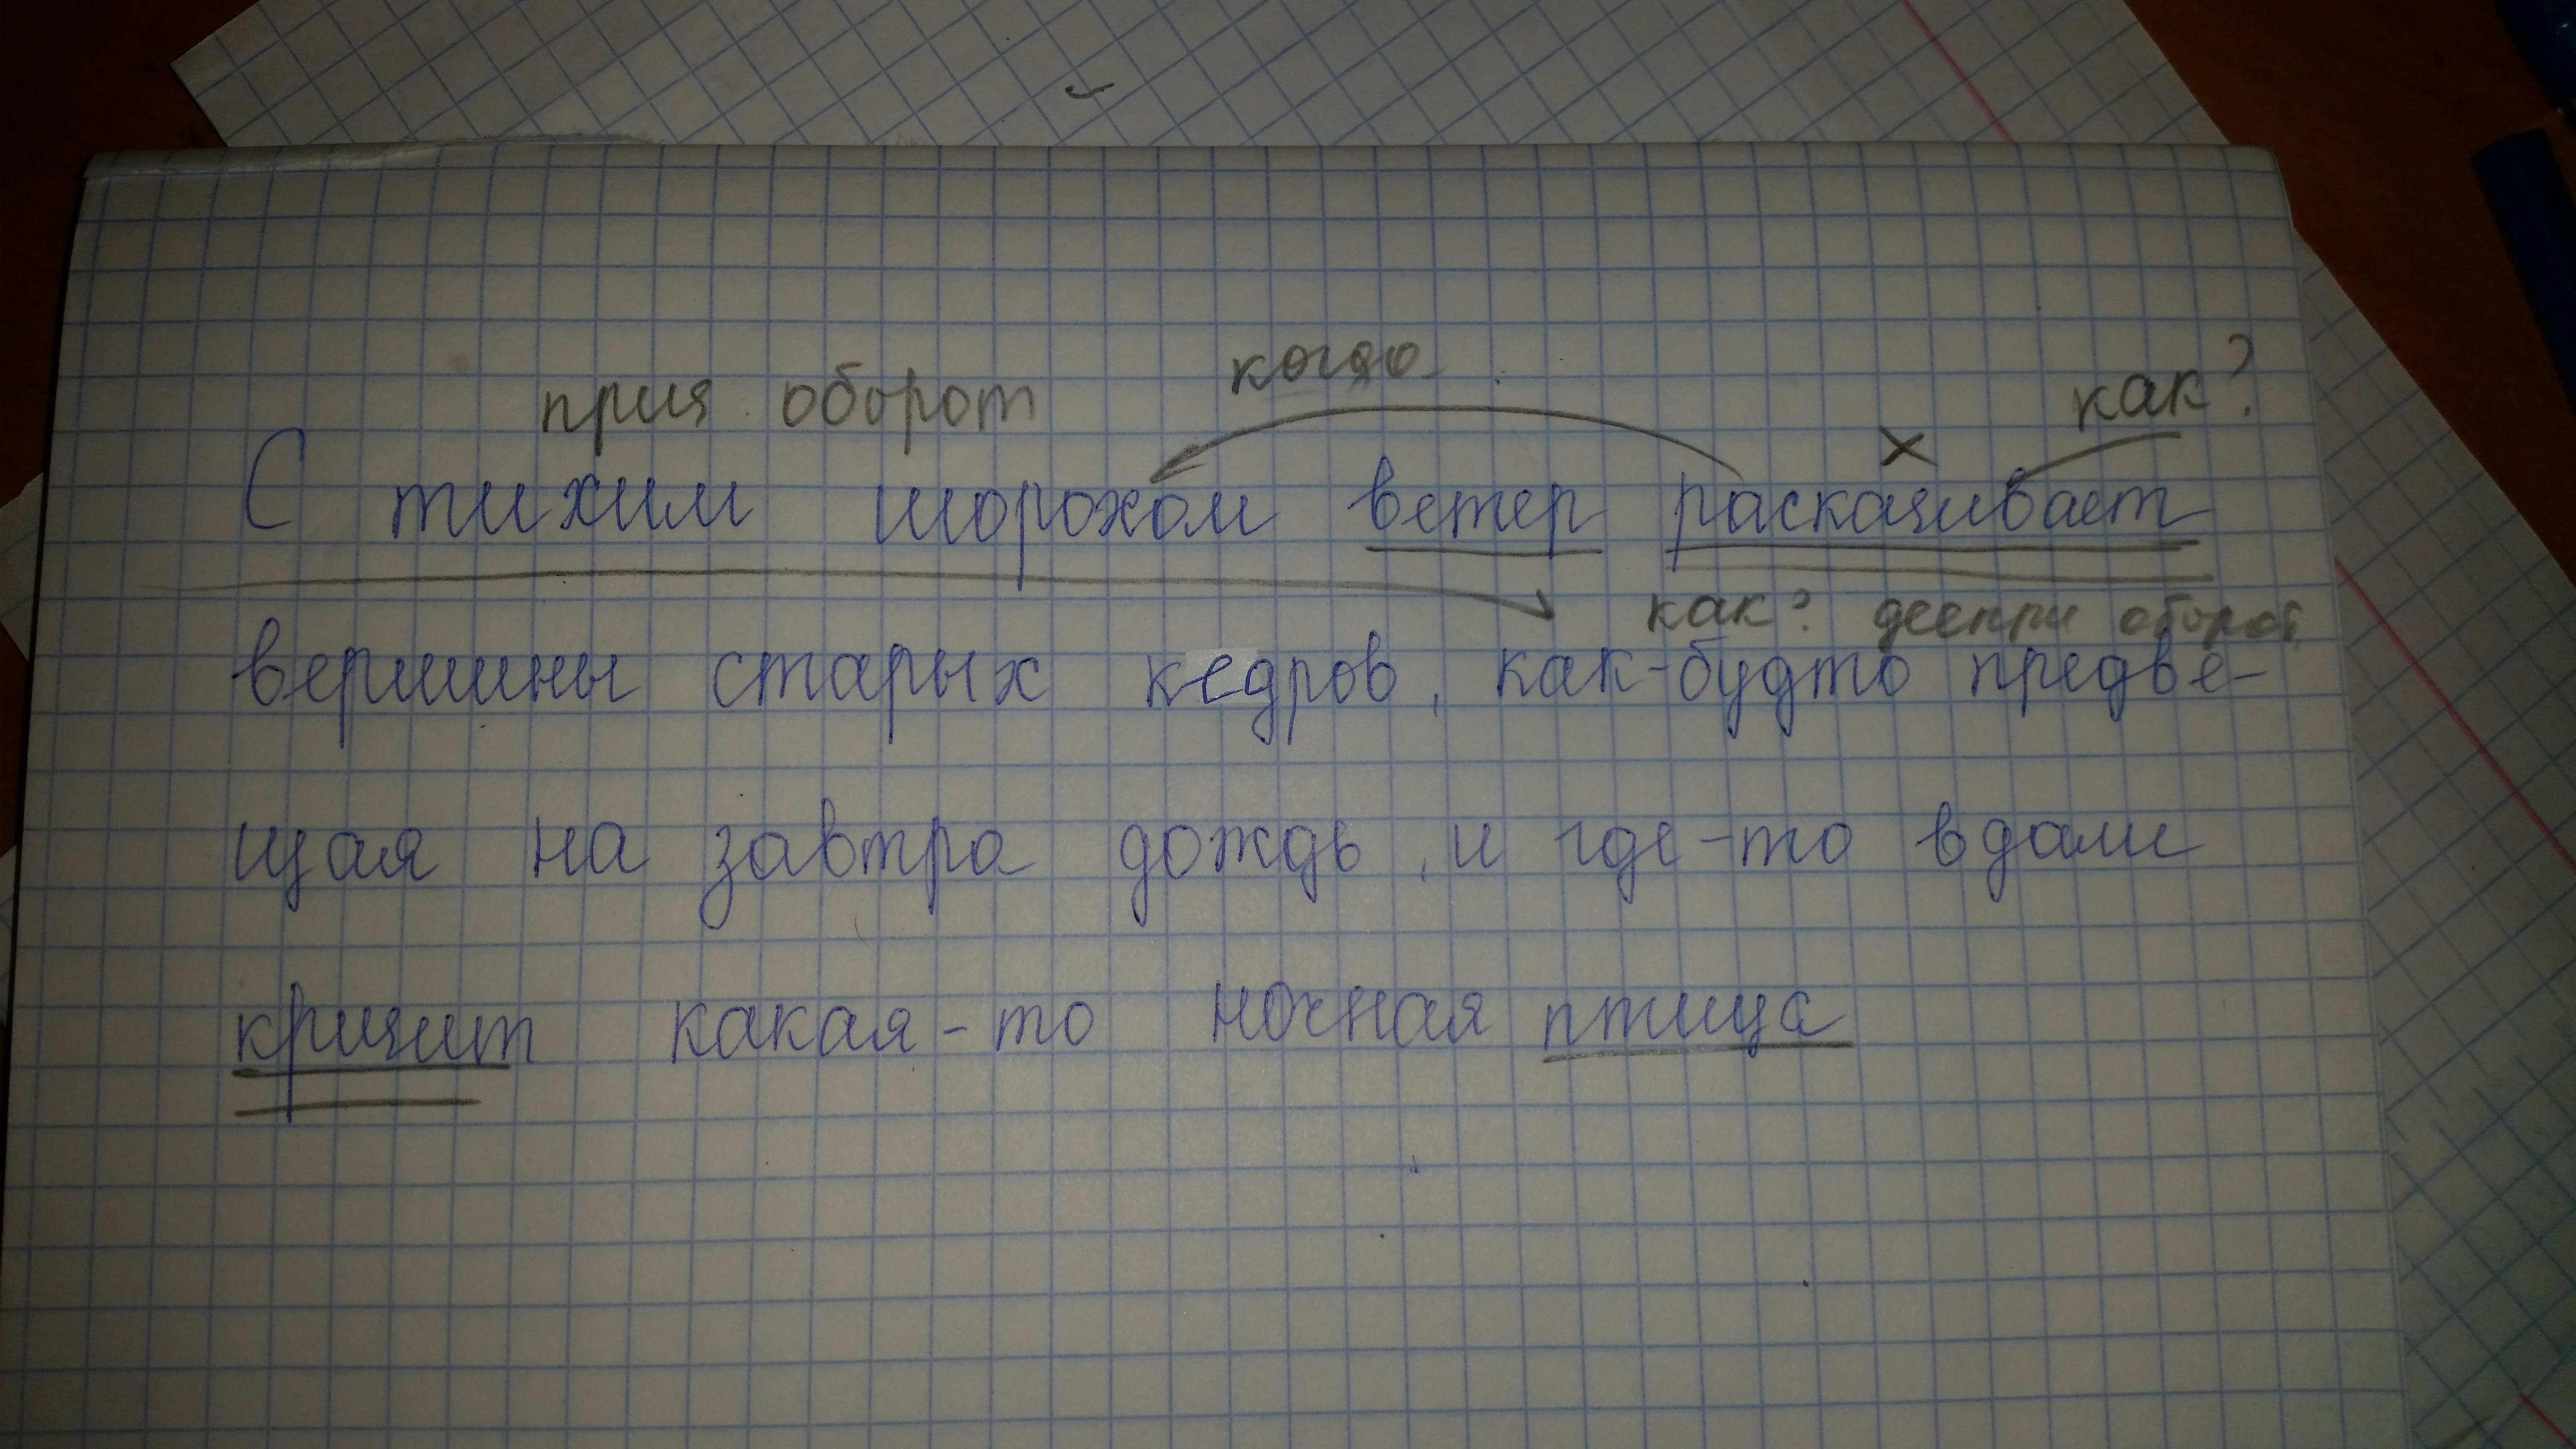 прич. оборот когда как?
С тихим шорохом ветер раскачивает
как? дееприч оборот
вершины старых кедров, как-будто предве-
щая на завтра дождь, и где-то вдали
кричит какая-то ночная птица